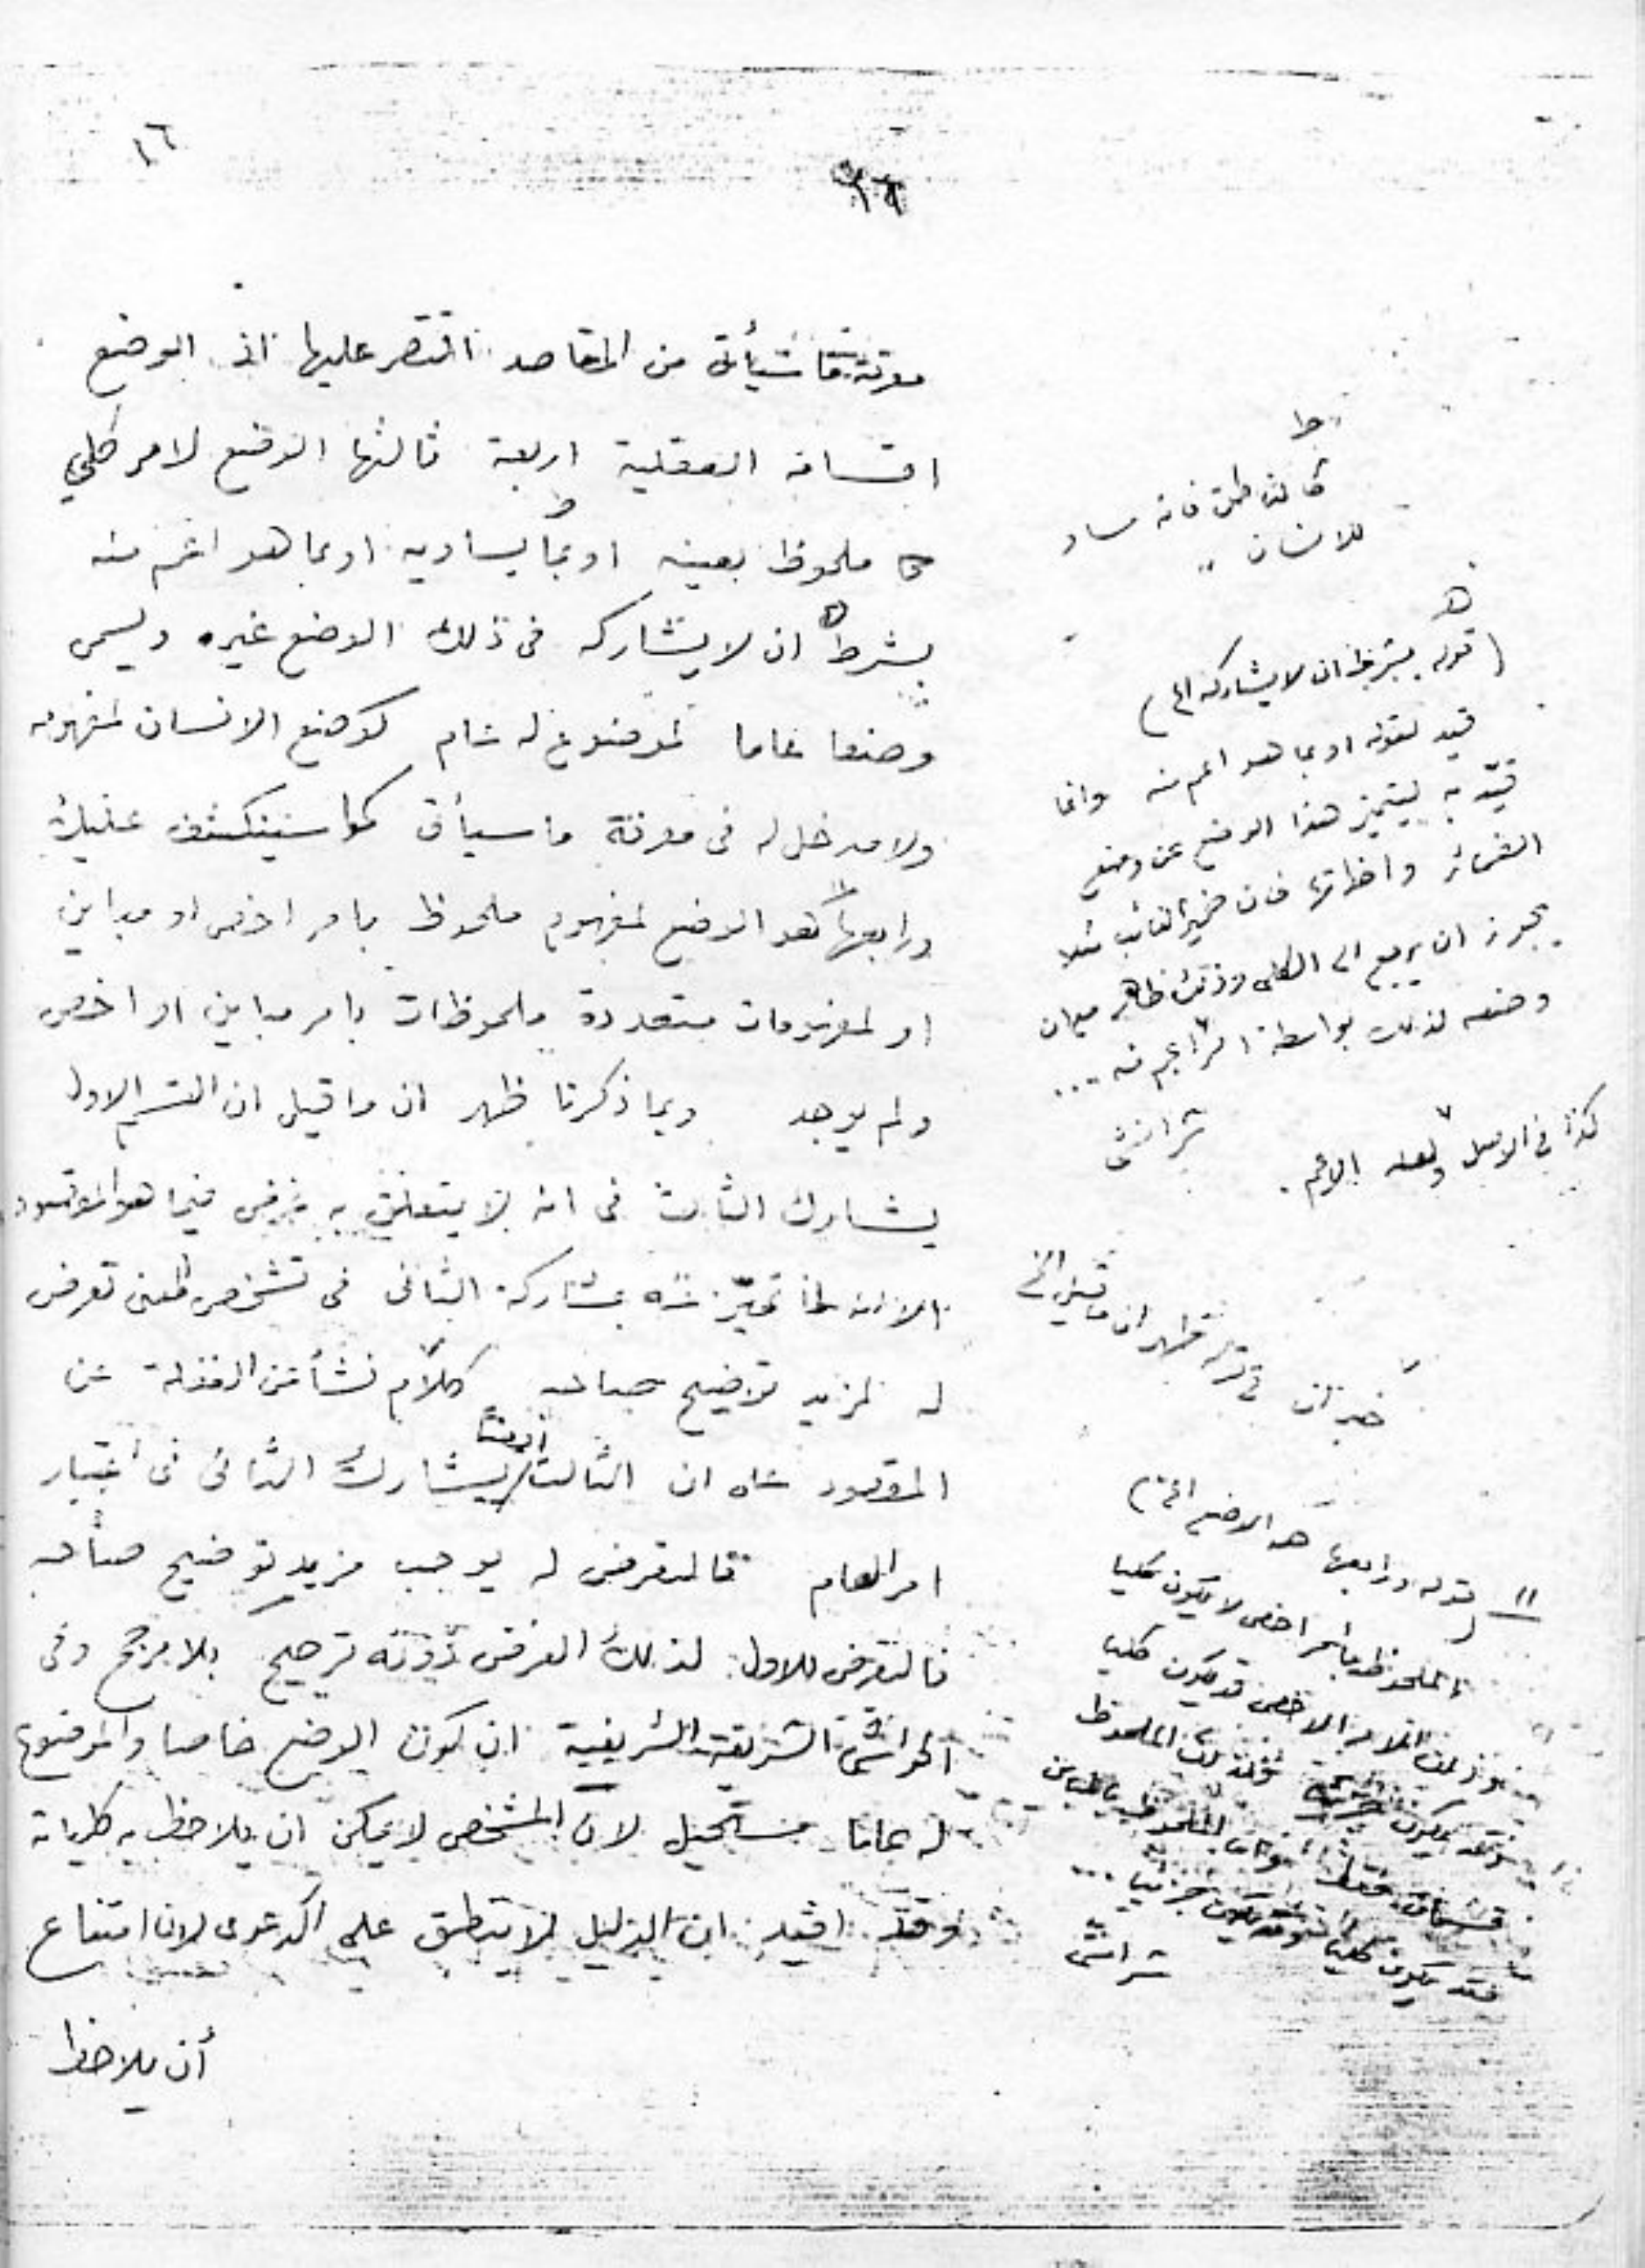 ١٦
١٦
معرفة ما سيأتى من المقاصد اقتصر عليها اذ الوضع
اقسامه العقلية اربعة ثالثها الوضع لامر كلي
ملحوظ بعينه او بما يساويه او بما هو اعم منه
بشرط ان لا يشاركه فى ذلك الوضع غيره ويسمى
وضعا عاما لموضوع له عام كوضع الانسان لمفهومه
ولا مدخل له فى معرفة ما سيأتى كما سينكشف عليك
ورابعها هو الوضع لمفهوم ملحوظ بامر اخص او مباين
او لمفهومات متعددة ملحوظات بامر مباين او اخص
ولم يوجد وبما ذكرنا ظهر ان ما قيل ان القسم الاول
يشارك الثالث فى انه لا يتعلق به غرض فيما هو المقصود
الا انه لما تميز عنه بمشاركة الثانى فى تشخص المعنى تعرض
له لمزيد توضيح صاحبه كلام نشأ من الغفلة عن
المقصود منه ان الثالث ايضا يشارك الثانى فى اعتبار
امر العام فالتعرض له يوجب مزيد توضيح صاحبه
فالتعرض للاول لذلك الغرض دونه ترجيح بلا مرجح وفى
الحواشى الشريفية ان كون الوضع خاصا والموضوع
له عاما مستحيل لان المشخص لا يمكن ان يلاحظ به كلياته
وقد افيد ان الدليل لا ينطبق على الدعوى لان امتناع
أن يلاحظ
ط
كالناطق فانه مساو
للانسان
(قوله بشرط ان لا يشاركه الخ)
قيد لقوله او بما هو اعم منه وانما
قيد به ليتميز هذا الوضع عن وضع
الضمائر واخواتها فان ضمير الغائب مثلا
يجوز ان يرجع الى الكلى وذلك ظاهر
وضعه لذلك بواسطة امر اعم منه ...
كذا في الاصل ولعله الاعم.
خبر ان في قوله ظهر ان ما قيل الخ
قوله ورابعها هو الوضع الخ)
الملحوظ بامر اخص لا يكون كليا
الامر الاخص قد يكون كليا
وقد يكون
فقد يكون كليا وقد يكون جزئيا ...